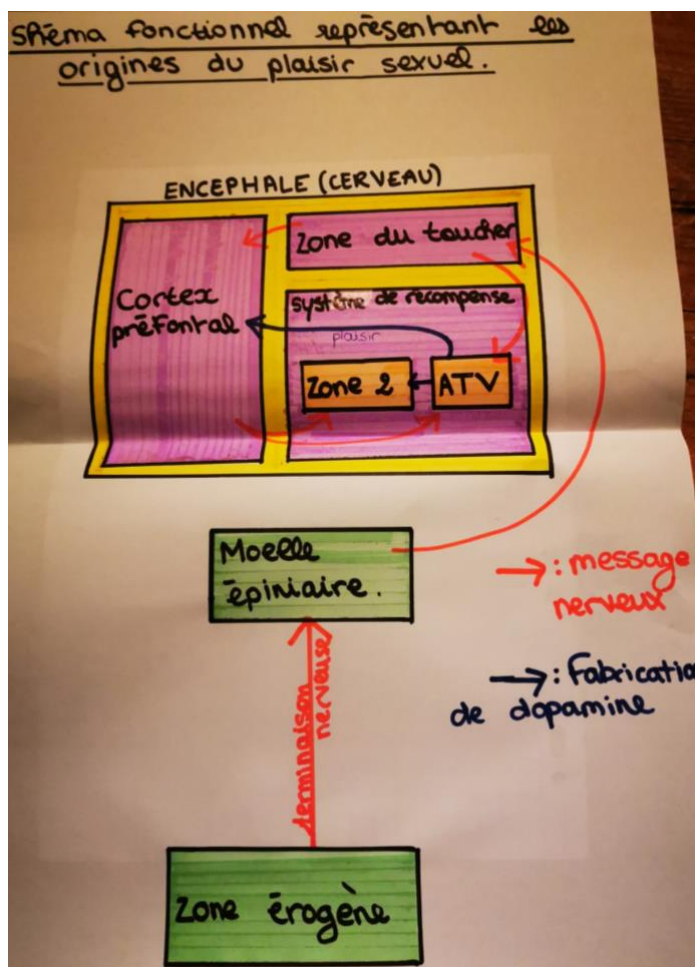 shēma fonctionnel reprēsentant les
origines du plaisir sexuel.
ENCEPHALE (CERVEAU)
Zone du toucher
Cortex
prēfontal
système de rēcompense
plaisir
Zone 2
ATV
Moelle
ēpiniaire.
: message
nerveux
terminaison
nerveuse
: Fabrication
de dopamine
Zone ērogène